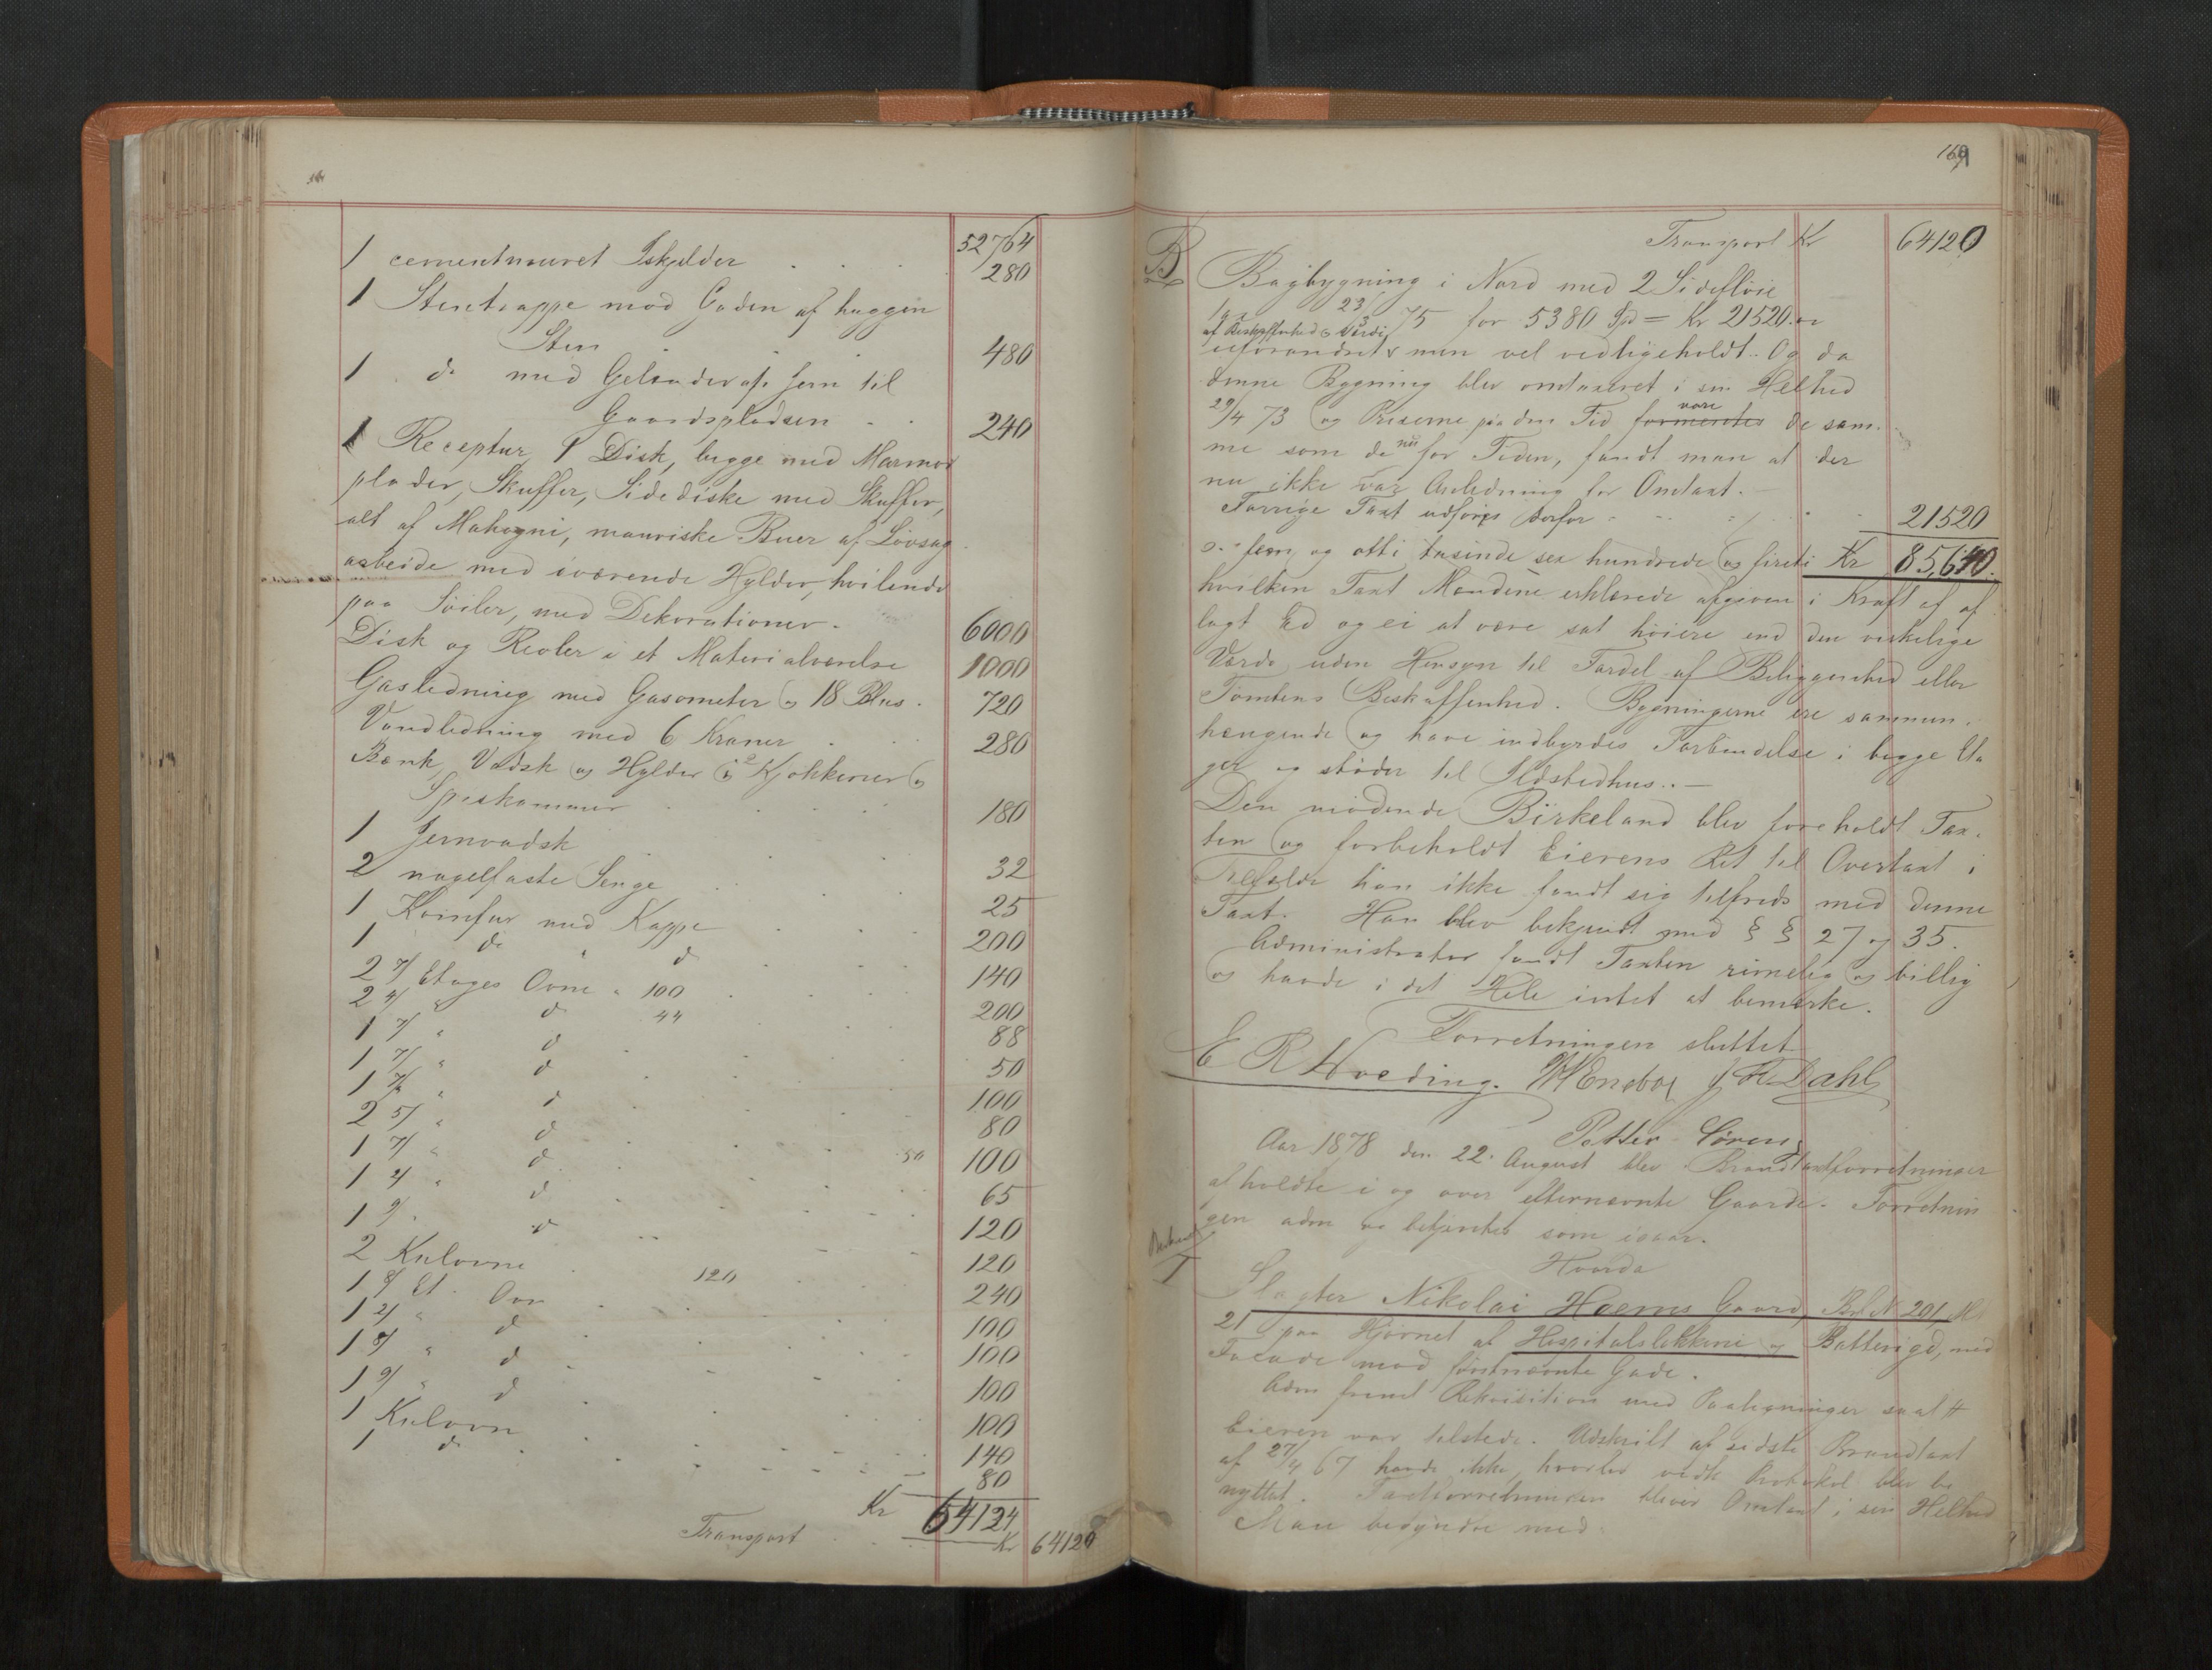 52764
1 cementmuret Iskjelder . . . 280
1 Stentrappe mod Gaden af huggen
Sten . . . 480
1 do med Gelænder af Jern til
Gaardspladsen . . 240
1 Receptur, 1 Disk, begge med Marmor
plader, Skuffer, Sidediske med Skuffer,
alt af Mahogni, mauriske Buer af Løvsag
arbeide med iværende Hylder, hvilende
paa Søiler, med Dekorationer. 6000
Disk og Reoler i et Materialværelse 1000
Gasledning med Gasometer og 18 Blus. 720
Vandledning med 6 Kraner . . 280
Bænk, Vadsk og Hylder i 2 Kjøkkener og
Spiskammer . . . 180
1 Jernvadsk . . . 32
2 nagelfaste Senge . . . 25
1 Komfur med Kappe . . . 200
1 do " d . . . 140
2 7/ Etages Ovne " 100 . . . 200
2 4/ " d 44 . . . 88
1 7/ " d . . . 50
1 7/ " d . . . 100
1 7/ " d . . . 80
2 5/ " d . . . 50 100
1 7/ " d . . . 65
1 4/ " d . . . 120
1 9/ " d . . . 120
2 Kulovne . 120 . . 240
1 8/ Et. Ovn . . . 100
1 2/ " d . . . 100
1 8/ " d . . . 100
1 9/ " d . . . 100
1 Kulovn . . . 140
1 do . . . 80
Kr 64124
Transport . . . Kr 64120
169
Transport Kr 64120
B
Bagbygning i Nord med 2 Sidefløie
23/3 75 for 5380 Spd = Kr 21520. er
af Beskaffenhed og Værdi
uforandret, men vel vedligeholdt. Og da
denne Bygning blev omtaxeret i sin Helhed
29/4 73 og Priserne paa den Tid formentes vare de sam-
me som de nu for Tiden, fandt man at der
nu ikke var Anledning for Omtaxt. —
Forrige Taxt udføres derfor . . . 21520
fem og otti tusinde sex hundrede og fireti Kr 85,640.
hvilken Taxt Mændene erklærede afgiven i Kraft af af
lagt Ed og ei at være sat høiere end den virkelige
Værdi uden Hensyn til Fordel af Beliggenhed eller
Tomtens Beskaffenhed. Bygningerne ere sammen-
hængende og have indbyrdes Forbindelse i begge Eta
ger og støder til Ildstedhus. —
Den mødende Birkeland blev foreholdt Tax-
ten og forbeholdt Eierens Ret til Overtaxt i
Tilfælde han ikke fandt sig tilfreds med denne
Taxt. Han blev bekjendt med § § 27 og 35.
Administrator fandt Taxten rimelig og billig
og havde i det Hele intet at bemærke.
Forretningen sluttet
E R Hvoeding. J R Dahl
Petter Sørens
Aar 1878 den 22. August blev Brandtaxtforretninger
afholdte i og over efternævnte Gaarde. Forretnin
gen adm og betjentes som igaar.
Hvorda
I
Slagter Nikolai Haerns Gaard, Br N 201, M
21 paa Hjørnet af Hospitalsløkkene og Batterigd, med
Facade mod førstnævnte Gade.
Adm freml Rekvisition med Paategninger saal #
Eieren var tilstede. Udskrift af sidste Brandtaxt
af 27/4 67 havde ikke, hvorfor vedk Protokol blev be
nyttet. Taxtforretningen bliver Omtaxt i sin Helhed
Man begyndte med: